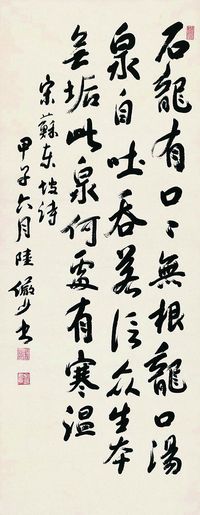 石龍有口〻無根龍口湯
泉自吐吞若信众生本
無垢此泉何處有寒溫
宋蘇東坡詩
甲子六月陸儼少書